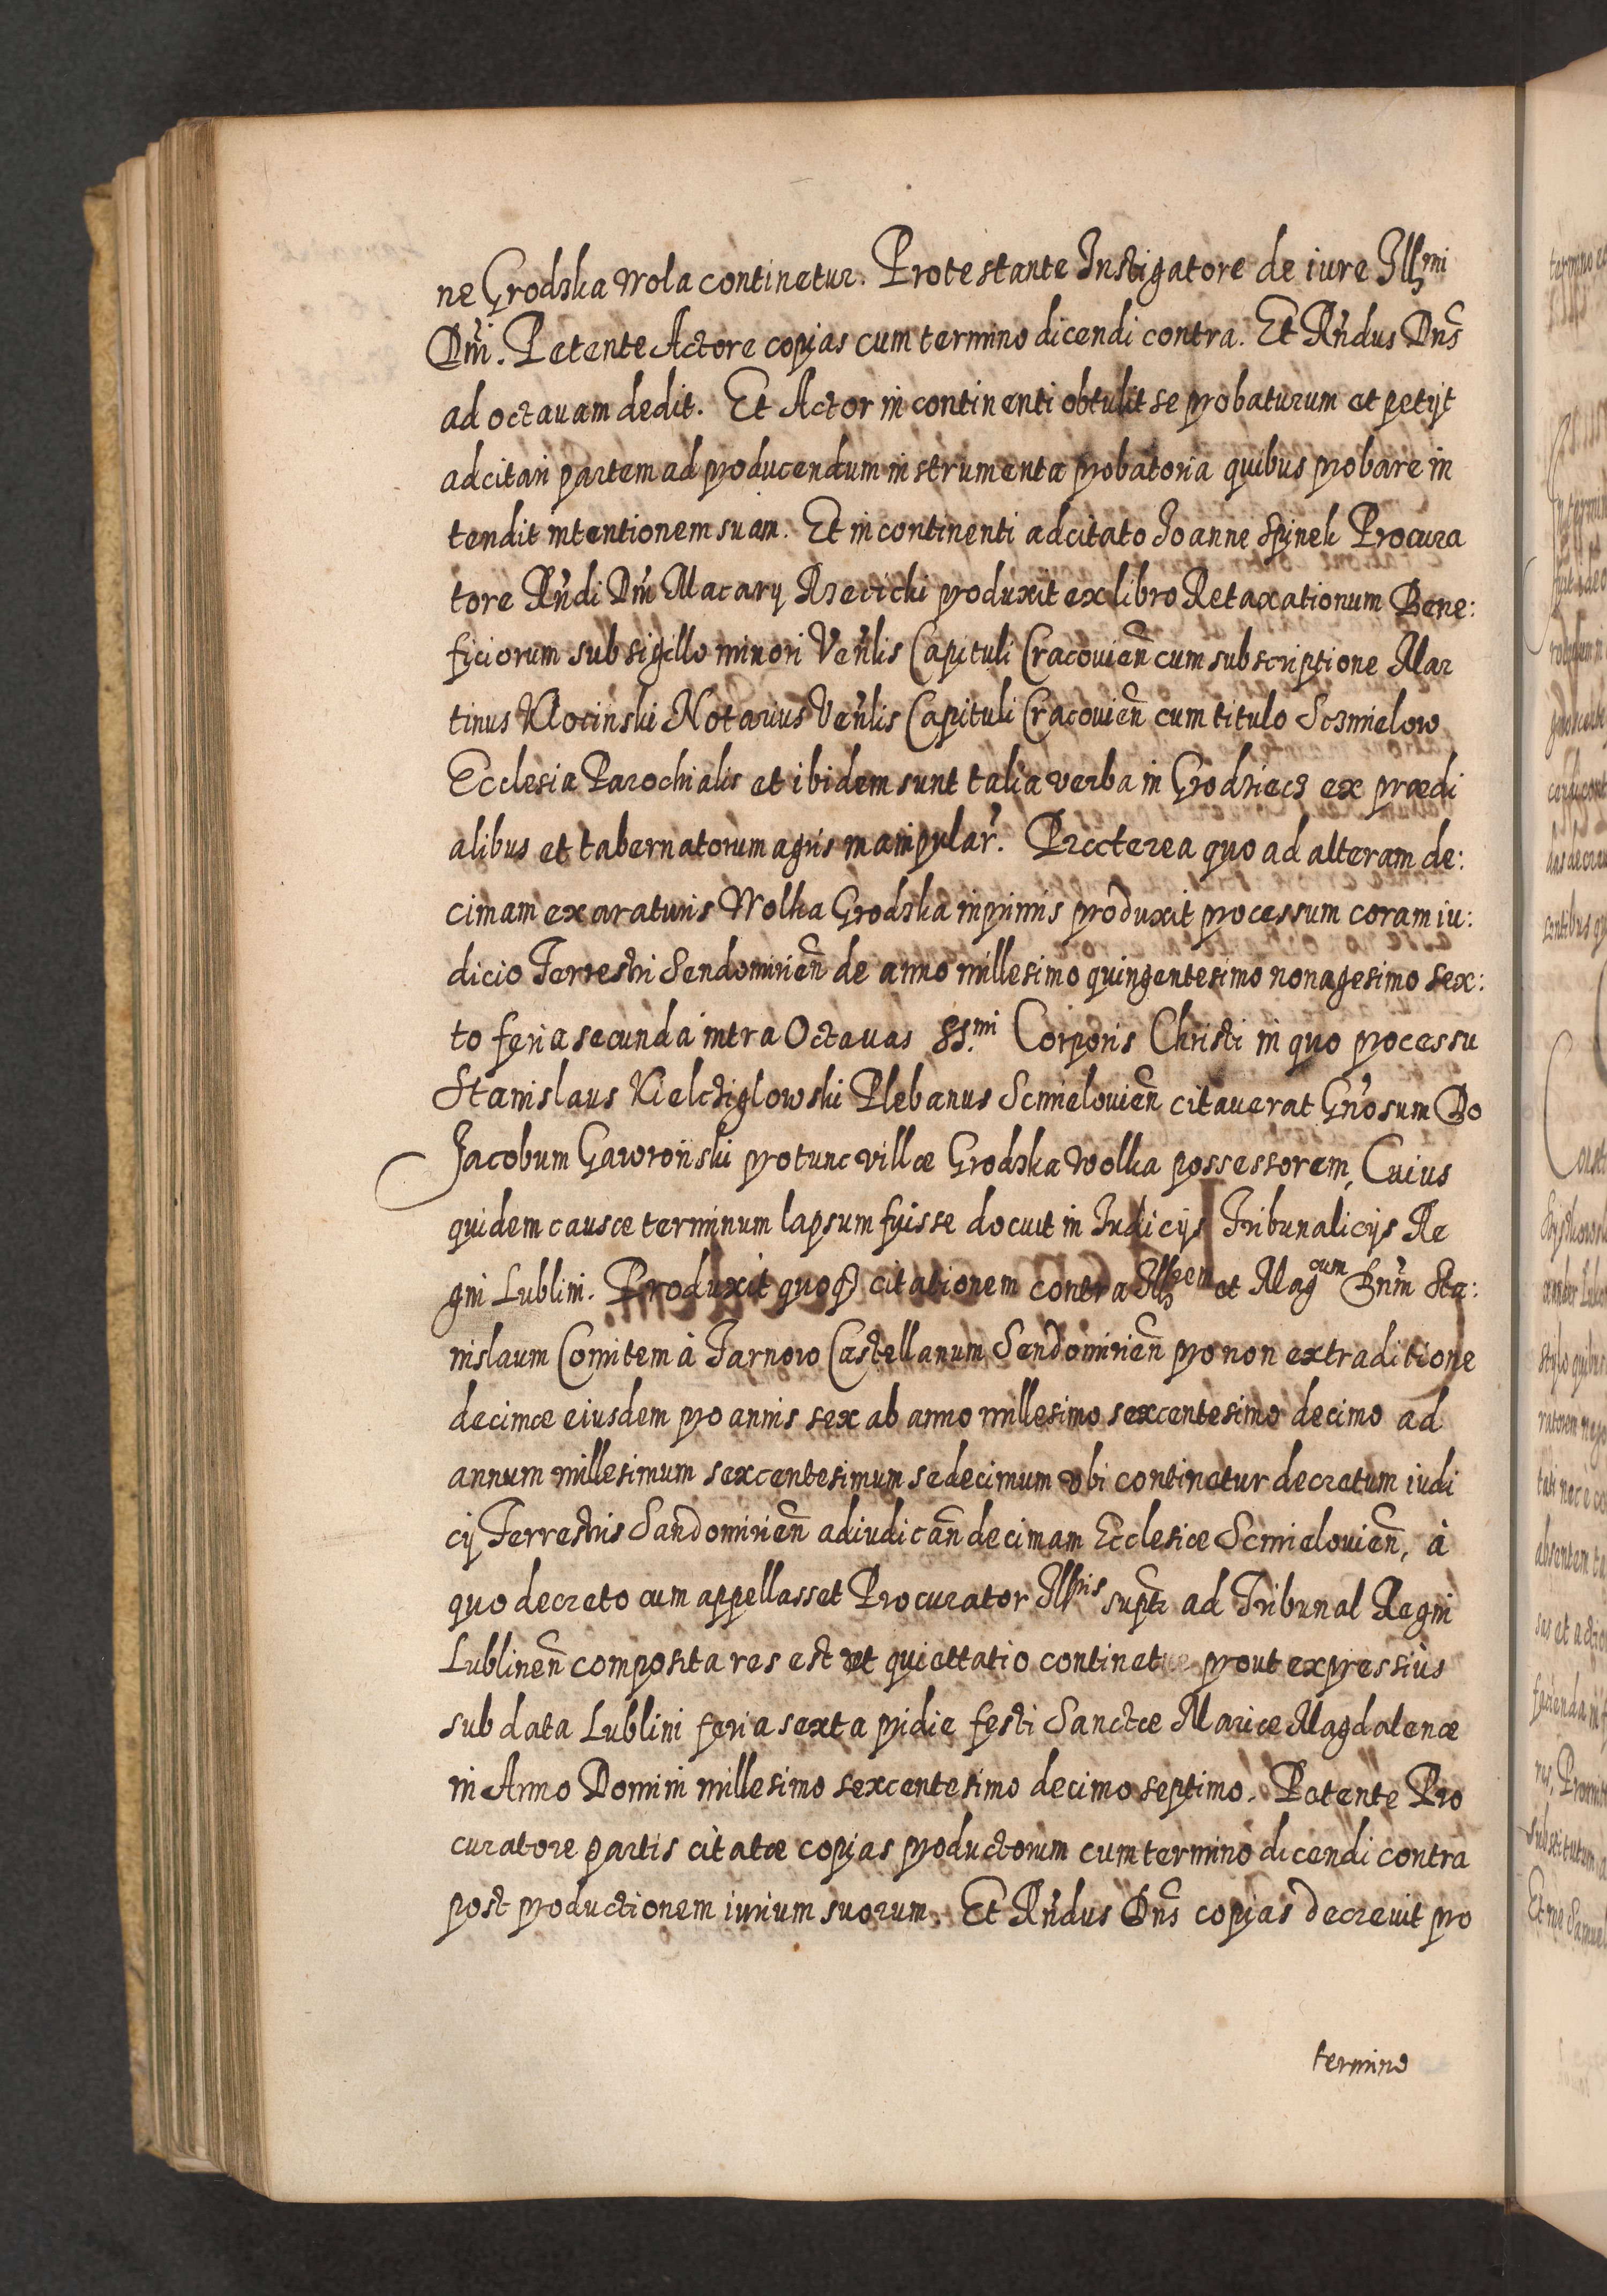 ne Grodzka Wola continetur. Protestante Instigatore de iure Illmi
Dni. Petente Actore copias cum termino dicendi contra. Et Rndus Dns
ad octauam dedit. Et Actor in continenti obtulit se probaturum et petijt
adcitari partem ad producendum instrumenta probatoria quibus probare in
tendit intentionem suam. Et in continenti adcitato Joanne Spinek Procura
tore Rndi Dni Macarij produxit ex libro Retaxationum Bene:
ficiorum sub sigillo minori Venlis Capituli Cracouien cum subscriptione Mar
tinus Klocinski Notarius Venlis Capituli Cracouien cum titulo Sczmielow
Ecclesia Parochialis et ibidem sunt talia verba in Grodziecz ex prædi
alibus et tabernatorum agris manipular. Præterea quo ad alteram de:
cimam ex araturis Wolka Grodzka inprimis produxit processum coram iu:
dicio Terrestri Sendomirien de anno millesimo quingentesimo nonagesimo sex:
to feria secunda intra Octauas SS.mi Corporis Christi in quo processu
Stanislaus Kielcziglowski Plebanus Scmielouien citauerat Gnosum Do
Jacobum Gawronski protunc villæ Grodzka Wolka possessorem, Cuius
quidem causæ terminum lapsum fuisse docuit in Iudicijs Tribunalicijs Re
gni Lublini. Produxit quoq citationem contra Illrem et Magcum Dnm Sta:
nislaum Comitem à Tarnow Castellanum Sendomirien pro non extraditione
decimæ eiusdem pro annis sex ab anno millesimo sexcentesimo decimo ad
annum millesimum sexcentesimum sedecimum vbi continetur decretum iudi
cij Terrestris Sandomirien adiudican decimam Ecclesiæ Scmielouien, à
quo decreto cum appellasset Procurator Illris supti ad Tribunal Regni
Lublinen composita res est et quiettatio continetur prout expressius
sub data Lublini feria sexta pridie festi Sanctæ Mariæ Magdalenæ
in Anno Domini millesimo sexcentesimo decimo septimo. Petente Pro
curatore partis citatæ copias productorum cum termino dicendi contra
post productionem iurium suorum. Et Rndus Dns copias decreuit pro
termino